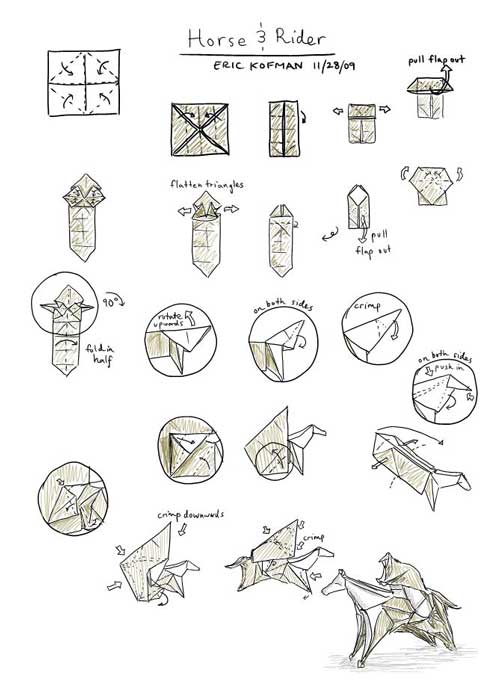 Horse & Rider
ERIC KOFMAN 11/28/09
pull flap out
flatten triangles
pull
flap out
90°
fold in
half
rotate
upwards
on both sides
crimp
on both sides
push in
crimp downwards
crimp